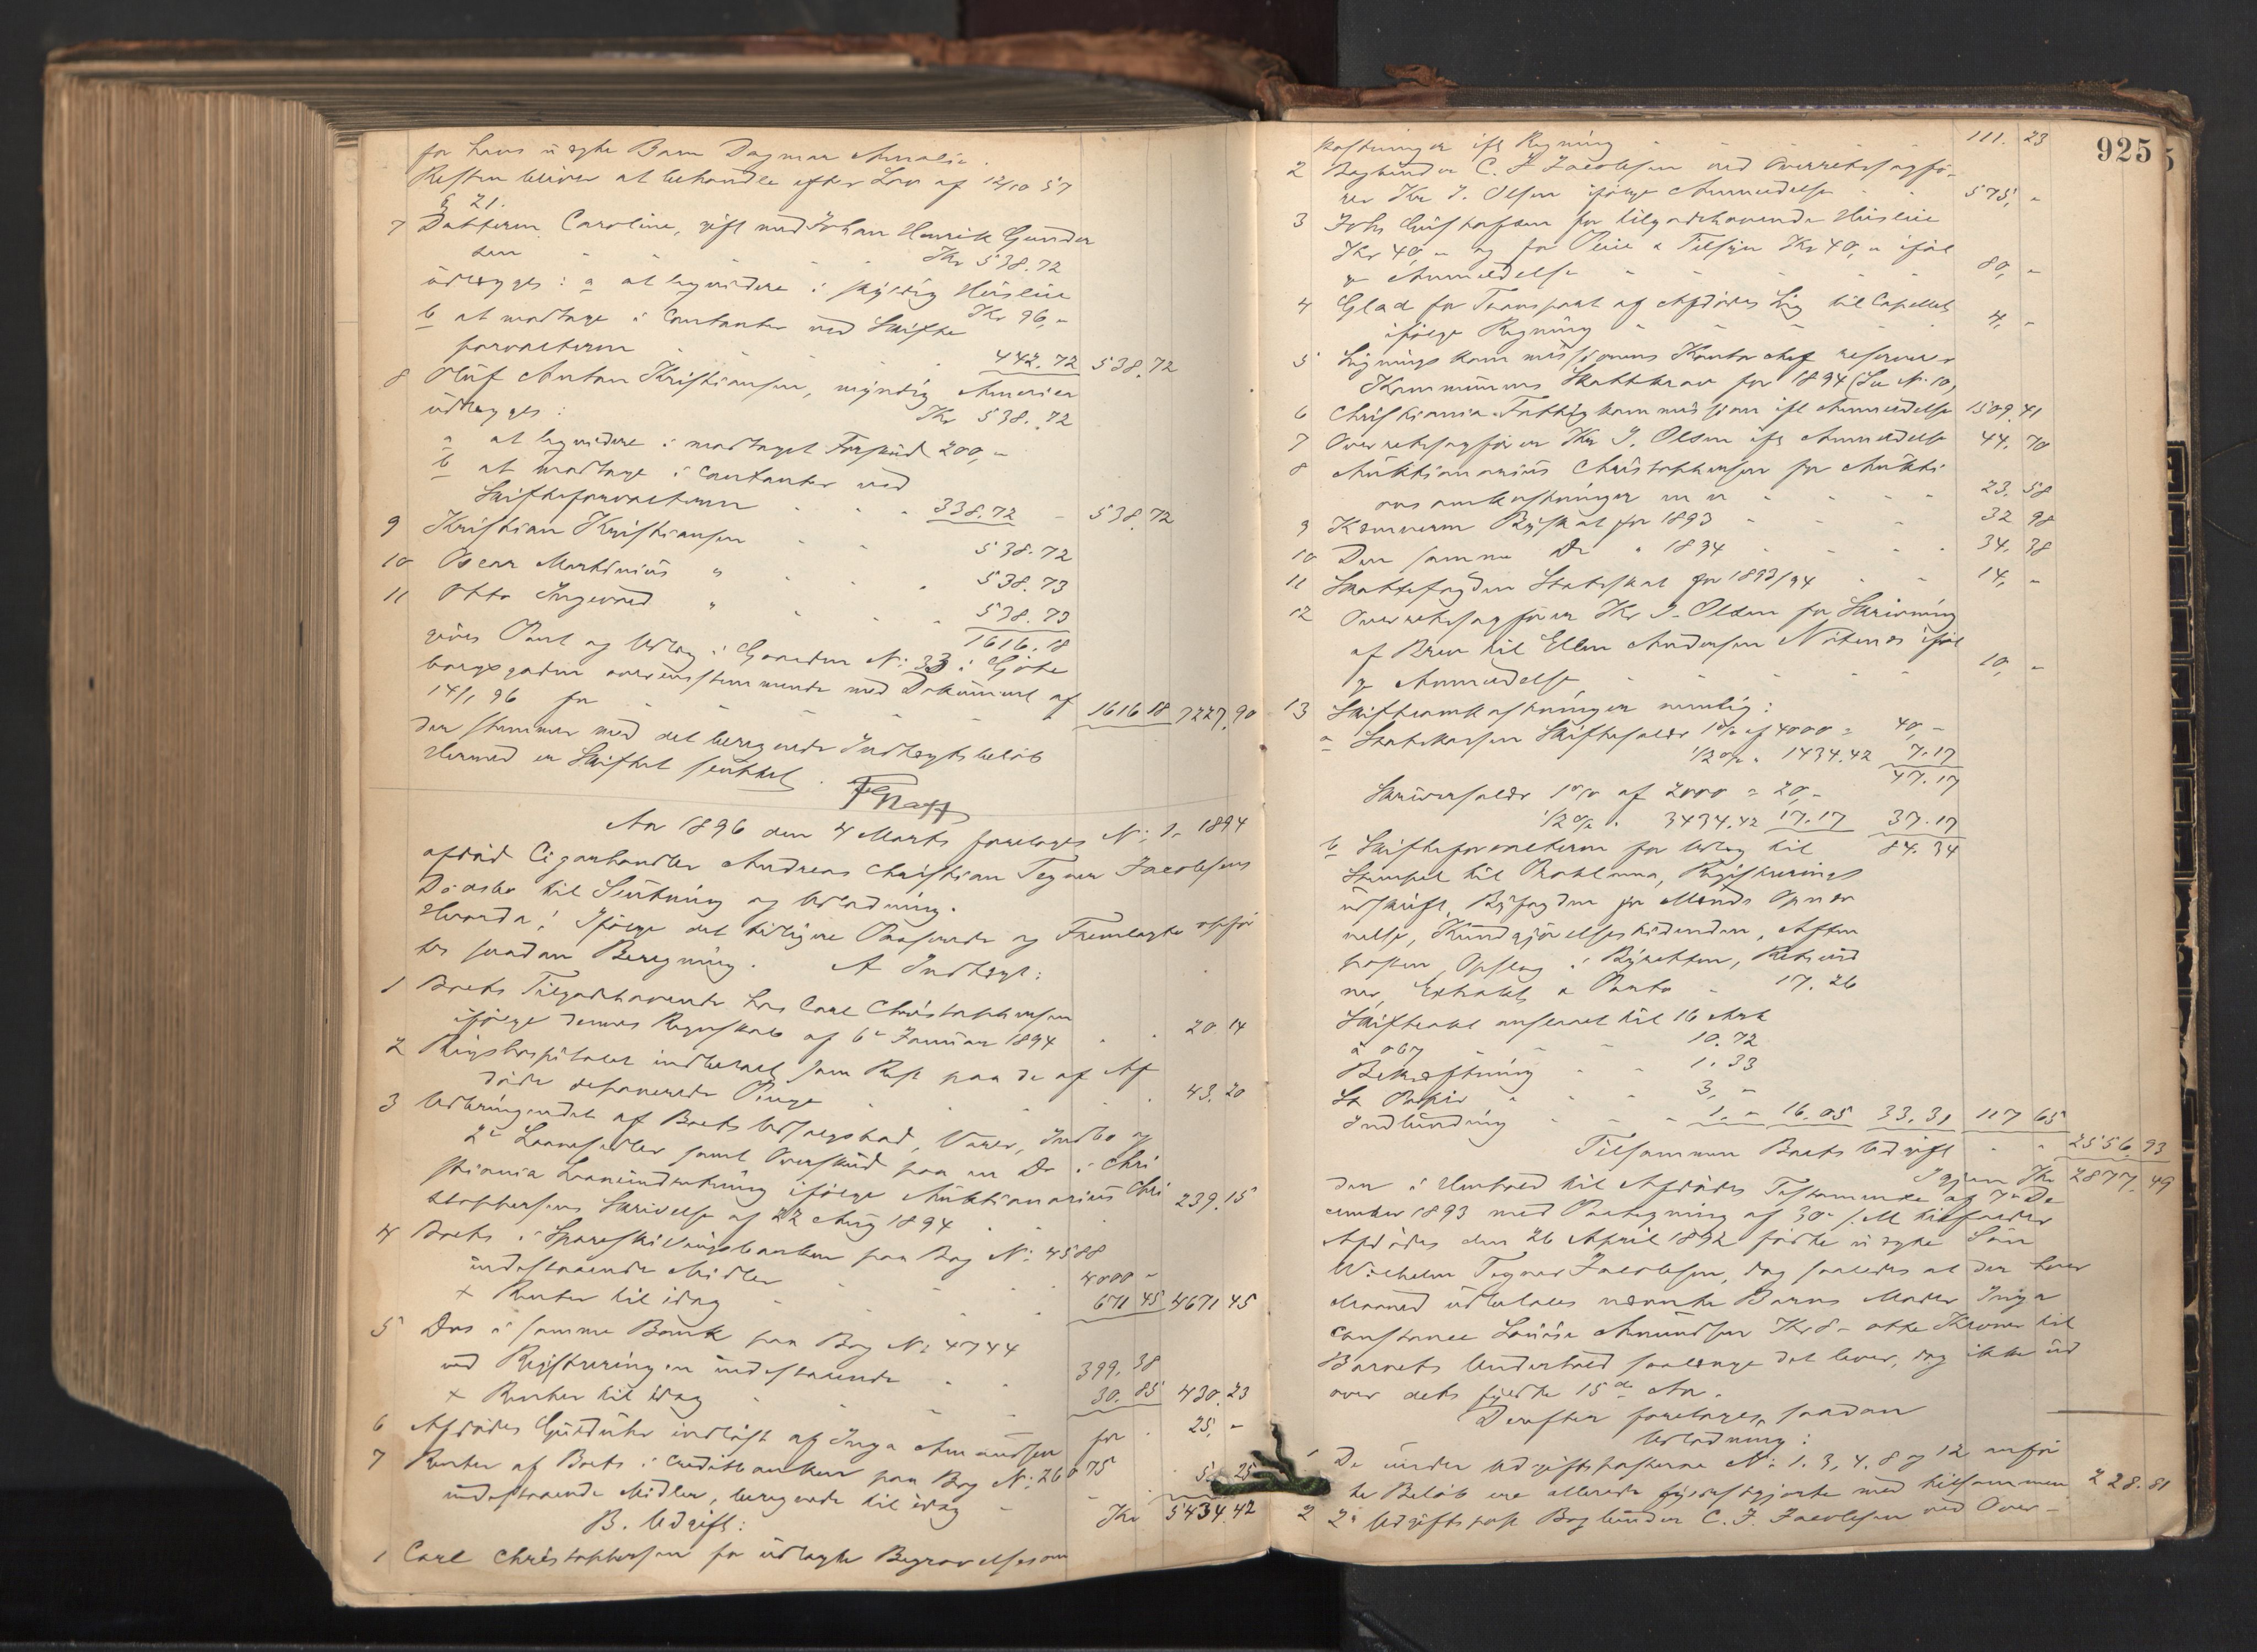 for hans u ægte Barn Dagmar Amalie.
Resten bliver at behandle efter Lov af 12/10 57
§ 21.
7 Datteren Caroline, gift med Johan Henrik Gunder
sen Kr 538.72
udlægges: a at liqvidere i skyldig Husleie
Kr 96,"
b at modtage i Contanter ved Skifte
forvalteren 442.72 538.72
8 Oluf Anton Kristiansen, myndig Amerika
udlægges: Kr 538.72
a at liqvidere i modtaget Forskud 200,"
b at modtage i Contanter ved
Skifteforvalteren 338.72 538.72
9 Kristian Kristiansen 538.72
10 Oscar Martinius " 538.73
11 Otto Ingevald " 538.73
1616.18
gives Part og Udlæg i Gaarden No: 33 i Gjøte
borggaden overensstemmende med Dokument af
14/1 96 for 1616 18 7227.90
der stemmer med det beregnede Indtægtsbeløb
Hermed er Skiftet sluttet.
Aar 1896 den 4 Marts foretoges No: 1. 1894
afdød Cigarhandler Andreas Christian Tegner Jacobsens
Dødsbo til Slutning og Udlodning.
Hvorda: Ifølge det tidligere Passerede og Fremlagte opfør
tes saadan Beregning. A Indtægt:
1 Boets Tilgodehavende hos Carl Christophersen
ifølge dennes Regnskab af 6te Januar 1894 20.14
2 Rigshospitalet indbetalt som Rest paa de af Af
døde deponerede Penge 43.20
3 Udbringendet af Boets Udsalgsbod, Varer, Indbo og
2de Laanesedler samt Overskud paa en Do i Chri
stiania Laaneindretning ifølge Auktionarius Chri
stophersens Skrivelse af 22 Aug 1894 239.15
4 Boets i Spareskillingsbanken paa Bog No: 4588
indestaaende Midler 4000 "
+ Renter til idag 671 45 4671 45
5 Dets i samme Bank paa Bog No 4744
ved Registreringen indestaaende 399.38
+ Renter til idag 30.85 430.23
6 Afdødes Guldur indløst af Inga Amundsen for 25,"
7 Renter af Boets i Creditbanken paa Bog No: 26075
indestaaende Midler, beregnede til idag 5.25
Kr 5434.42
B. Udgift:
1 Carl Christophersen for udlagte Begravelsesom
925
kostninger ifl Regning 111.23
2 Bogbinder C. J Jacobsen ved Overretssagfø-
rer Kr J. Olsen ifølge Anmeldelse 575,"
3 Johs Gustafsen for tilgodehavende Husleie
Kr 40," og for Pleie & Tilsyn Kr 40," iføl
ge Anmeldelse 80,"
4 Glad for Transport af Afdødes Lig til Capellet
ifølge Regning 4,"
5 Ligningskommissionens Kontorchef reserverer
Kommunens Skattekrav for 1894 (Se No. 10,
6 Christiania Fattigkommission ifl Anmeldelse 1509.41
7 Overretssagfører Kr J. Olsen ifl Anmeldelse 44.70
8 Auktionarius Christophersen for Aukti
onsomkostninger m m 23.58
9 Kæmneren Byskat for 1893 32 98
10 Den samme Do " 1894 34.38
11 Skattefogden Statsskat for 1893/94 14,"
12 Overretssagfører Kr J. Olsen for Skrivning
af Brev til Ellen Andersen Næternæs iføl
ge Anmeldelse 10,"
13 Skifteomkostninger nemlig:
a Statskassen Skiftesaldr 1% af 4000 = 40,"
1/2 % " 1434.42 7.17
47.17
Skriversaldr 1% af 2000 = 20,"
1/2 % " 3434.42 17.17 37.17
b Skifteforvalteren for Udlæg til 84.34
Stempel til Proklama, Registrerings
udskrift, Byfogden for Mænds Opnæv
nelse, Kundgjørelsestidenden, Aften
posten, Opslag i Byretten, Retsvid
ner, Extrakt & Porto 17.26
Skifteakt anslaaet til 16 Ark
à 067 10.72
Bekræftning 1.33
St Papir 3,"
Indbinding 1," 16.05 33.31 117 65
Tilsammen Boets Udgift 2556.93
Igjen Kr 2877.49
der i Henhold til Afdødes Testamente af 7de De
cember 1893 med Paategning af 30te s.M tilfalder
Afdødes den 26 April 1892 fødte u ægte Søn
Wilhelm Tegner Jacobsen, dog saaledes at der hver
Maaned udbetales nævnte Barns Moder Inga
Constance Louise Amundsen Kr 8- otte Kroner til
Barnets Underhold saalænge det lever, dog ikke ud
over dets fyldte 15de Aar.
Derefter foretoges saadan
Udlodning:
1 De under Udgiftsposterne No: 1. 3, 4. 8 og 12 anfør
te Beløb ere allerede fyldestgjorte med tilsammen 228.81
2 2de Udgiftspost Bogbinder C. J. Jacobsen ved Over-